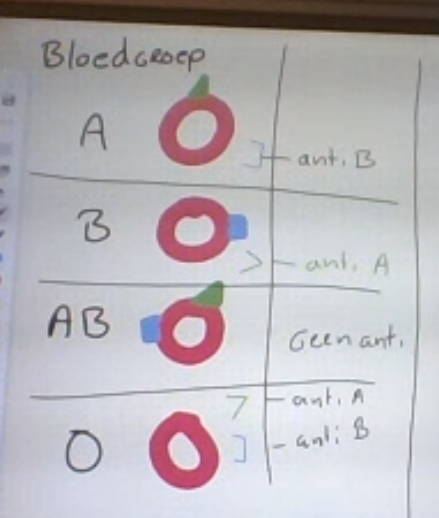 Bloedgroep
A
anti B
B
anti A
AB
Geen anti.
anti A
O
anti B